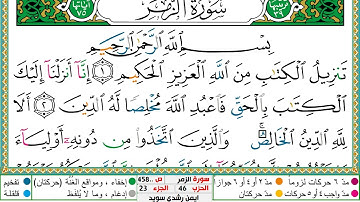 سُورَةُ الزُّمَرِ
بِسْمِ اللَّهِ الرَّحْمَٰنِ الرَّحِيمِ
تَنزِيلُ الْكِتَٰبِ مِنَ اللَّهِ الْعَزِيزِ الْحَكِيمِ ١ إِنَّا أَنزَلْنَا إِلَيْكَ
الْكِتَٰبَ بِالْحَقِّ فَاعْبُدِ اللَّهَ مُخْلِصًا لَّهُ الدِّينَ ٢ أَلَا
لِلَّهِ الدِّينُ الْخَالِصُ وَالَّذِينَ اتَّخَذُوا مِن دُونِهِ أَوْلِيَاءَ
مدّ ٦ حركات لزوماً مدّ ٢ أو ٤ أو ٦ جوازاً سورة الزمر ص ..458 إخفاء، ومواقع الغُنَّة (حركتان) تفخيم
مدّ حركتان الحزب 46 الجزء 23 إدغام، وما لا يُلفَظ قلقلة
ايمن رشدي سويد